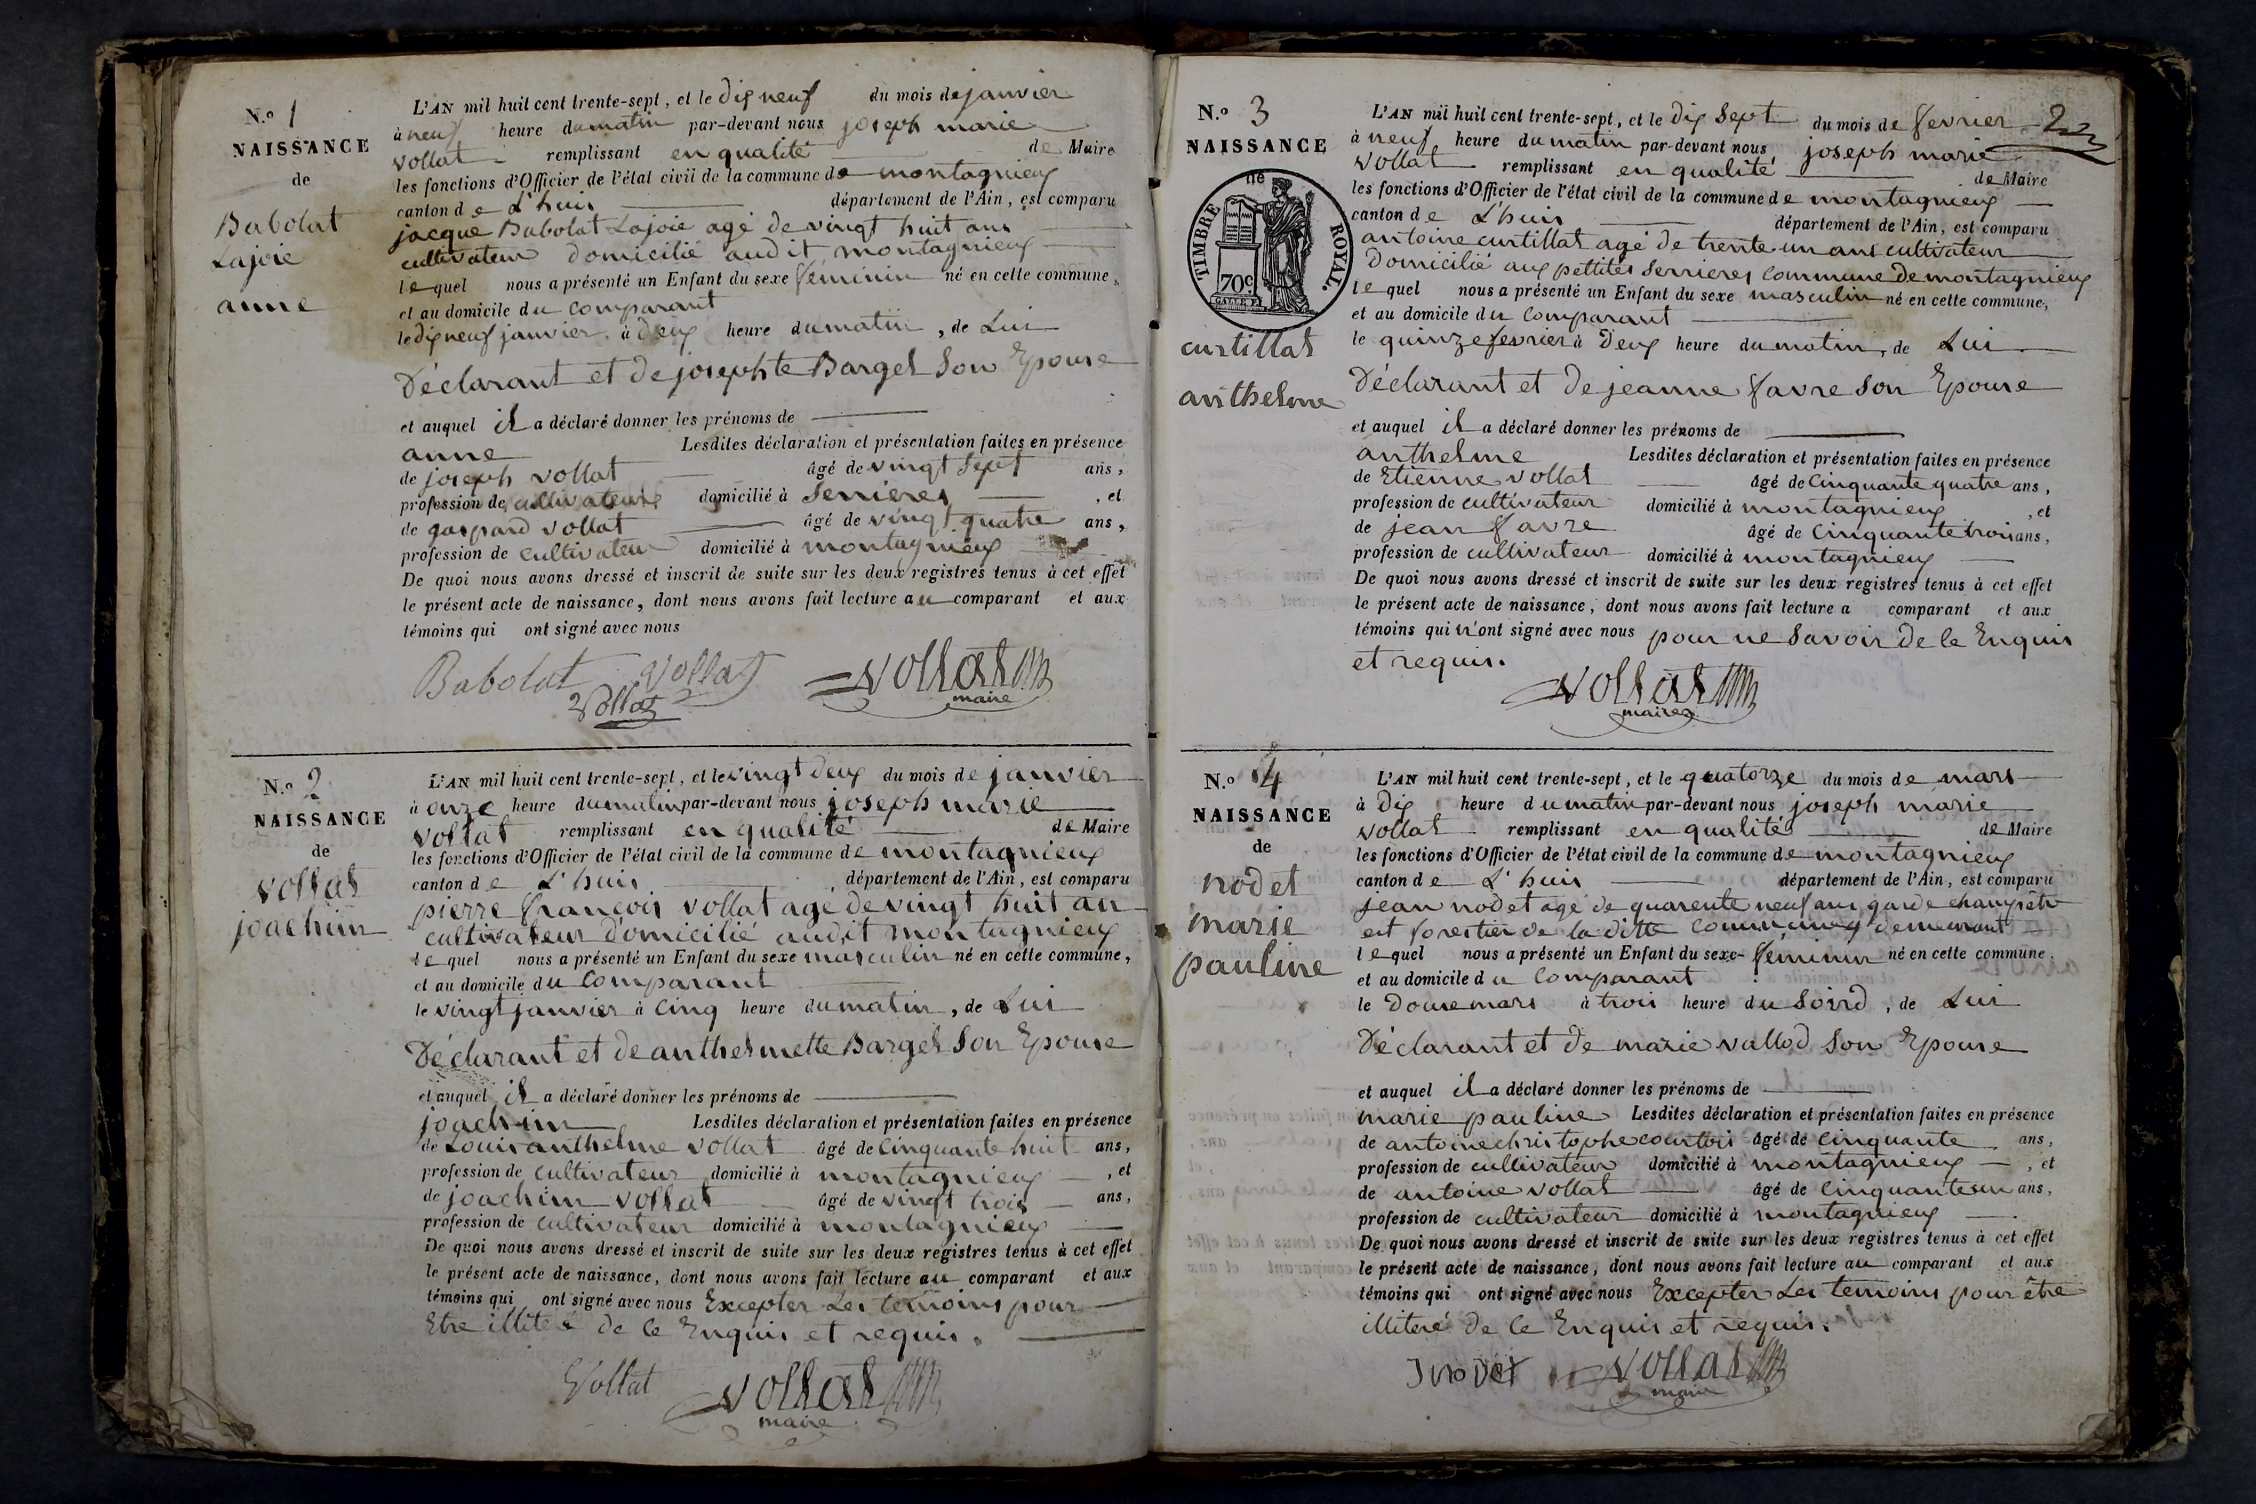 N.o 1
NAISSANCE
de
Babolat
Lajoie
anne
L'AN mil huit cent trente-sept, et le dix neuf du mois de janvier
à neuf heure du matin par-devant nous joseph marie
vollat remplissant en qualité de Maire
les fonctions d'Officier de l'état civil de la commune de montagnieux
canton de L'huis département de l'Ain, est comparu
jacque Babolat Lajoie agé de vingt huit ans
cultivateur domicilié audit montagnieux
lequel nous a présenté un Enfant du sexe féminin né en cette commune,
et au domicile du comparant
le dix neuf janvier à deux heure du matin, de Lui
Déclarant et de josephte Barget Son Epouse
et auquel il a déclaré donner les prénoms de
anne Lesdites déclaration et présentation faites en présence
de joseph vollat âgé de vingt Sept ans,
profession de cultivateur domicilié à Serrieres, et
de gaspard vollat âgé de vingt quatre ans,
profession de cultivateur domicilié à montagnieux
De quoi nous avons dressé et inscrit de suite sur les deux registres tenus à cet effet
le présent acte de naissance, dont nous avons fait lecture au comparant et aux
témoins qui ont signé avec nous
Babolat vollat vollat
Vollat maire
N.o 2
NAISSANCE
de
vollat
joachim
L'AN mil huit cent trente-sept, et le vingt deux du mois de janvier
à onze heure du matin par-devant nous joseph marie
vollat remplissant en qualité de Maire
les fonctions d'Officier de l'état civil de la commune de montagnieux
canton de L'huis département de l'Ain, est comparu
pierre françois vollat agé de vingt huit an
cultivateur domicilié audit montagnieux
lequel nous a présenté un Enfant du sexe masculin né en cette commune,
et au domicile du Comparant
le vingt janvier à cinq heure du matin, de Lui
Déclarant et de anthelmette Barget Son Epouse
et auquel il a déclaré donner les prénoms de
joachim Lesdites déclaration et présentation faites en présence
de Louis anthelme vollat âgé de Cinquante huit ans,
profession de cultivateur domicilié à montagnieux, et
de joachim vollat âgé de vingt trois ans,
profession de cultivateur domicilié à montagnieux
De quoi nous avons dressé et inscrit de suite sur les deux registres tenus à cet effet
le présent acte de naissance, dont nous avons fait lecture au comparant et aux
témoins qui ont signé avec nous Excepter Les temoins pour
Etre illiteré de Ce Enquis et requis.
Vollat vollat
maire
N.o 3
NAISSANCE
TIMBRE ROYAL.
70c
curtillat
anthelme
2
L'AN mil huit cent trente-sept, et le dix Sept du mois de fevrier
à neuf heure du matin par-devant nous joseph marie
vollat remplissant en qualité de Maire
les fonctions d'Officier de l'état civil de la commune de montagnieux
canton de L'huis département de l'Ain, est comparu
antoine curtillat agé de trente un ans cultivateur
Domicilié aux pettites Serrieres Commune de montagnieux
lequel nous a présenté un Enfant du sexe masculin né en cette commune,
et au domicile du Comparant
le quinze fevrier à Deux heure du matin, de Lui
Déclarant et de jeanne favre Son Epouse
et auquel il a déclaré donner les prénoms de
anthelme Lesdites déclaration et présentation faites en présence
de Etienne vollat âgé de Cinquante quatre ans,
profession de cultivateur domicilié à montagnieux, et
de jean favre âgé de Cinquante trois ans,
profession de cultivateur domicilié à montagnieux
De quoi nous avons dressé et inscrit de suite sur les deux registres tenus à cet effet
le présent acte de naissance, dont nous avons fait lecture a comparant et aux
témoins qui n'ont signé avec nous pour ne Savoir de Ce Enquis
et requis.
vollat
maire
N.o 4
NAISSANCE
de
nodet
marie
pauline
L'AN mil huit cent trente-sept, et le quatorze du mois de mars
à dix heure du matin par-devant nous joseph marie
vollat remplissant en qualité de Maire
les fonctions d'Officier de l'état civil de la commune de montagnieux
canton de L'huis département de l'Ain, est comparu
jean nodet agé de quarente neuf ans garde champêtre
est forestier de la ditte Commune y demeurant
lequel nous a présenté un Enfant du sexe féminin né en cette commune,
et au domicile du Comparant
le Douse mars à trois heure du Soird, de Lui
Déclarant et de marie vallod Son Epouse
et auquel il a déclaré donner les prénoms de
marie pauline Lesdites déclaration et présentation faites en présence
de antoine christophe courtois âgé de Cinquante ans,
profession de cultivateur domicilié à montagnieux, et
de antoine vollat âgé de Cinquante un ans,
profession de cultivateur domicilié à montagnieux
De quoi nous avons dressé et inscrit de suite sur les deux registres tenus à cet effet
le présent acte de naissance, dont nous avons fait lecture au comparant et aux
témoins qui ont signé avec nous Excepter Les temoins pour être
illiteré de Ce Enquis et requis.
J nodet vollat
maire